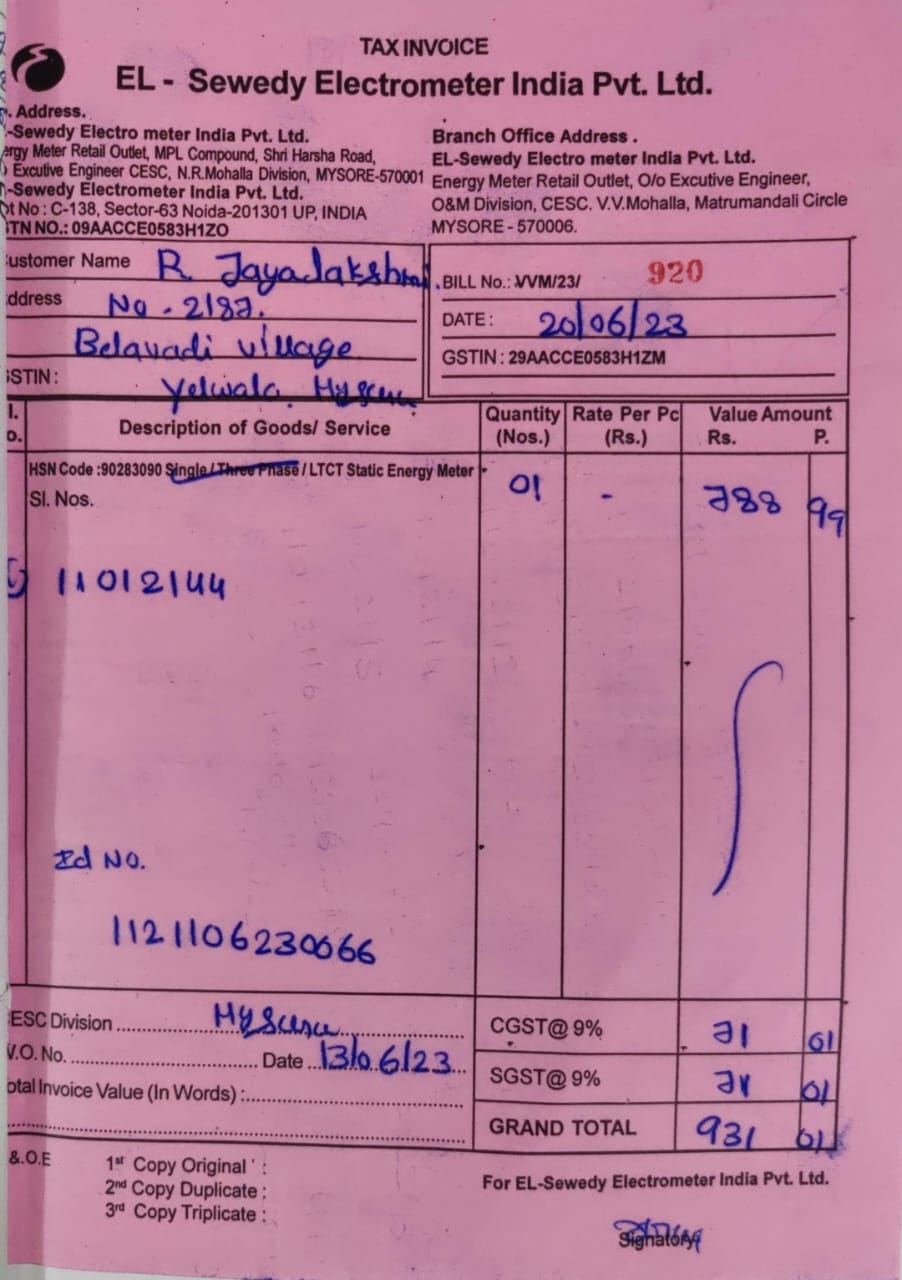 TAX INVOICE
EL - Sewedy Electrometer India Pvt. Ltd.
. Address.
-Sewedy Electro meter India Pvt. Ltd.
ergy Meter Retail Outlet, MPL Compound, Shri Harsha Road,
Excutive Engineer CESC, N.R.Mohalla Division, MYSORE-570001
-Sewedy Electrometer India Pvt. Ltd.
ot No : C-138, Sector-63 Noida-201301 UP, INDIA
STN NO.: 09AACCE0583H1ZO
Branch Office Address .
EL-Sewedy Electro meter India Pvt. Ltd.
Energy Meter Retail Outlet, O/o Excutive Engineer,
O&M Division, CESC. V.V.Mohalla, Matrumandali Circle
MYSORE - 570006.
ustomer Name R. Jayalakshmi
ddress No - 2187.
Belavadi village
GSTIN : Yelwala. Mysuru
BILL No.: VVM/23/ 920
DATE : 20/06/23
GSTIN : 29AACCE0583H1ZM
l. o. Description of Goods/ Service Quantity (Nos.) Rate Per Pc (Rs.) Value Amount Rs. P.
HSN Code :90283090 Single / Three Phase / LTCT Static Energy Meter 01 - 788 99
Sl. Nos.
11012144
Id No.
1121106230066
ESC Division Mysuru CGST@ 9% 71 01
V.O. No. Date 13/06/23 SGST@ 9% 71 01
otal Invoice Value (In Words) :
GRAND TOTAL 931 01
&.O.E
1st Copy Original :
2nd Copy Duplicate :
3rd Copy Triplicate :
For EL-Sewedy Electrometer India Pvt. Ltd.
Signatory